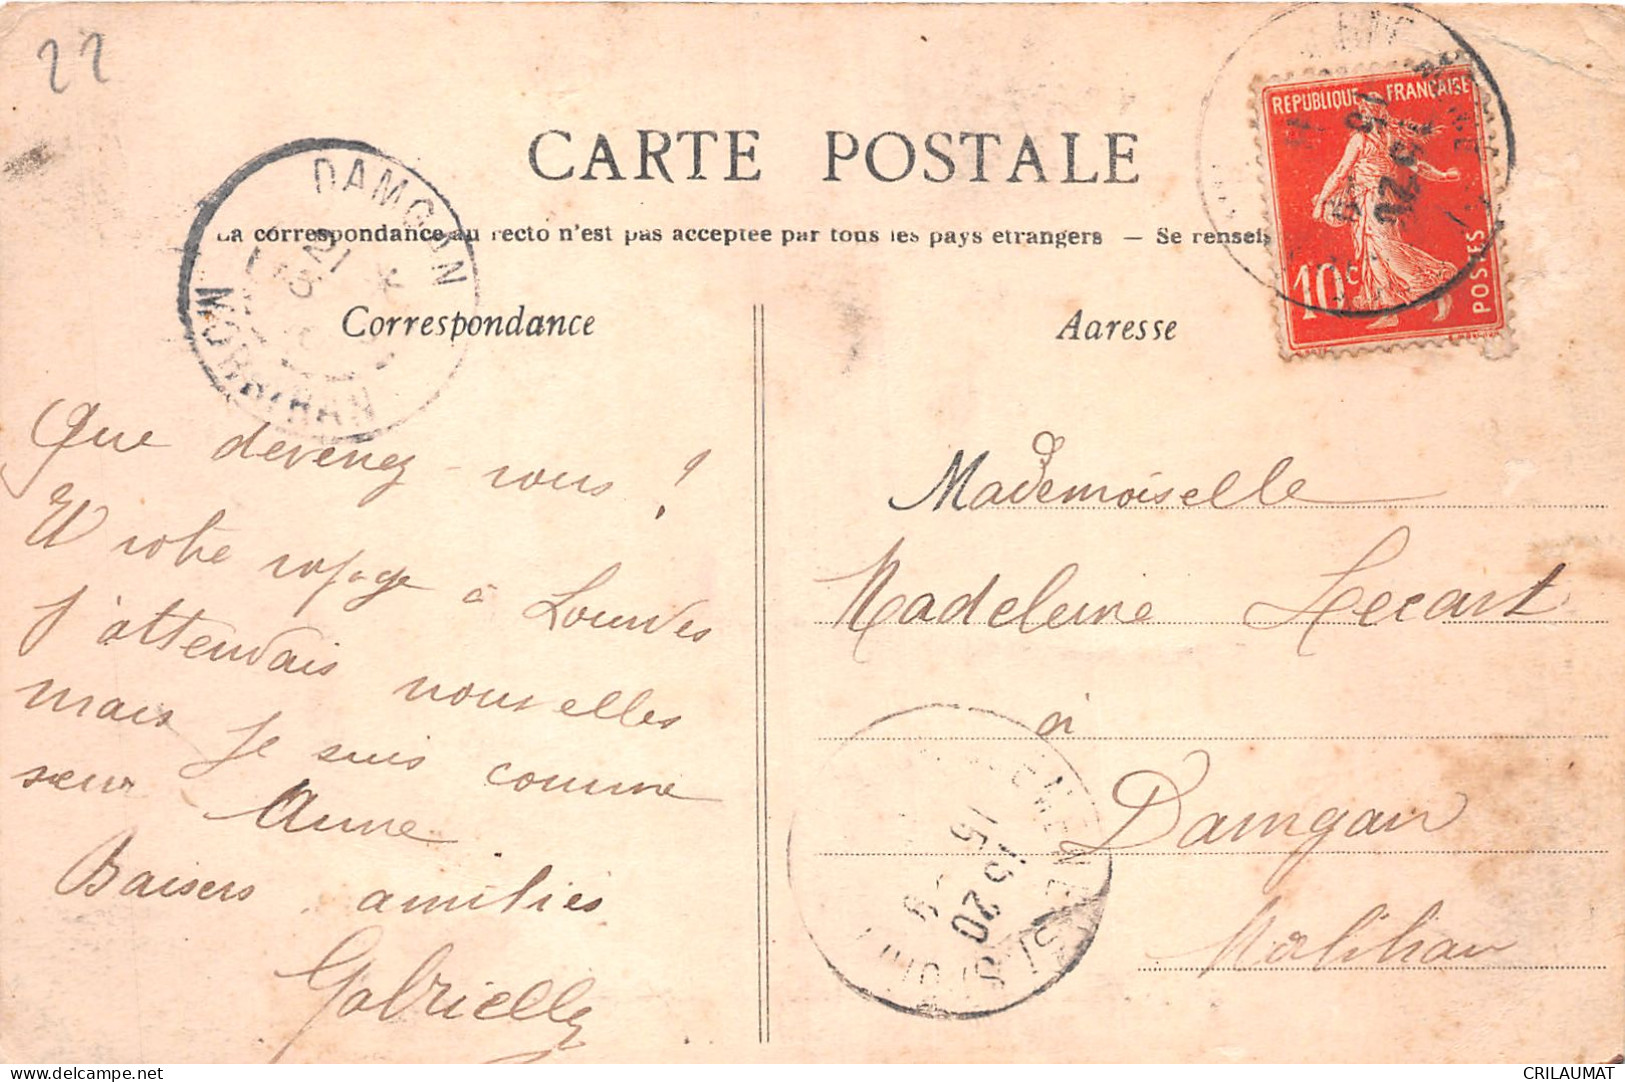 22
CARTE POSTALE
La correspondance au recto n'est pas acceptée par tous les pays etrangers — Se rensei
REPUBLIQUE FRANÇAISE
10c
POSTES
DAMGAN
MORBIHAN
Correspondance
Adresse
Que devenez-vous !
Et votre voyage à Lourdes
J'attendais nouvelles
mais je suis comme
sœur Anne
Baisers amitiés
Gabrielle
Mademoiselle
Madeleine Lecart
à
Damgan
Morbihan
15
15 20
delcampe.net
CRILAUMAT